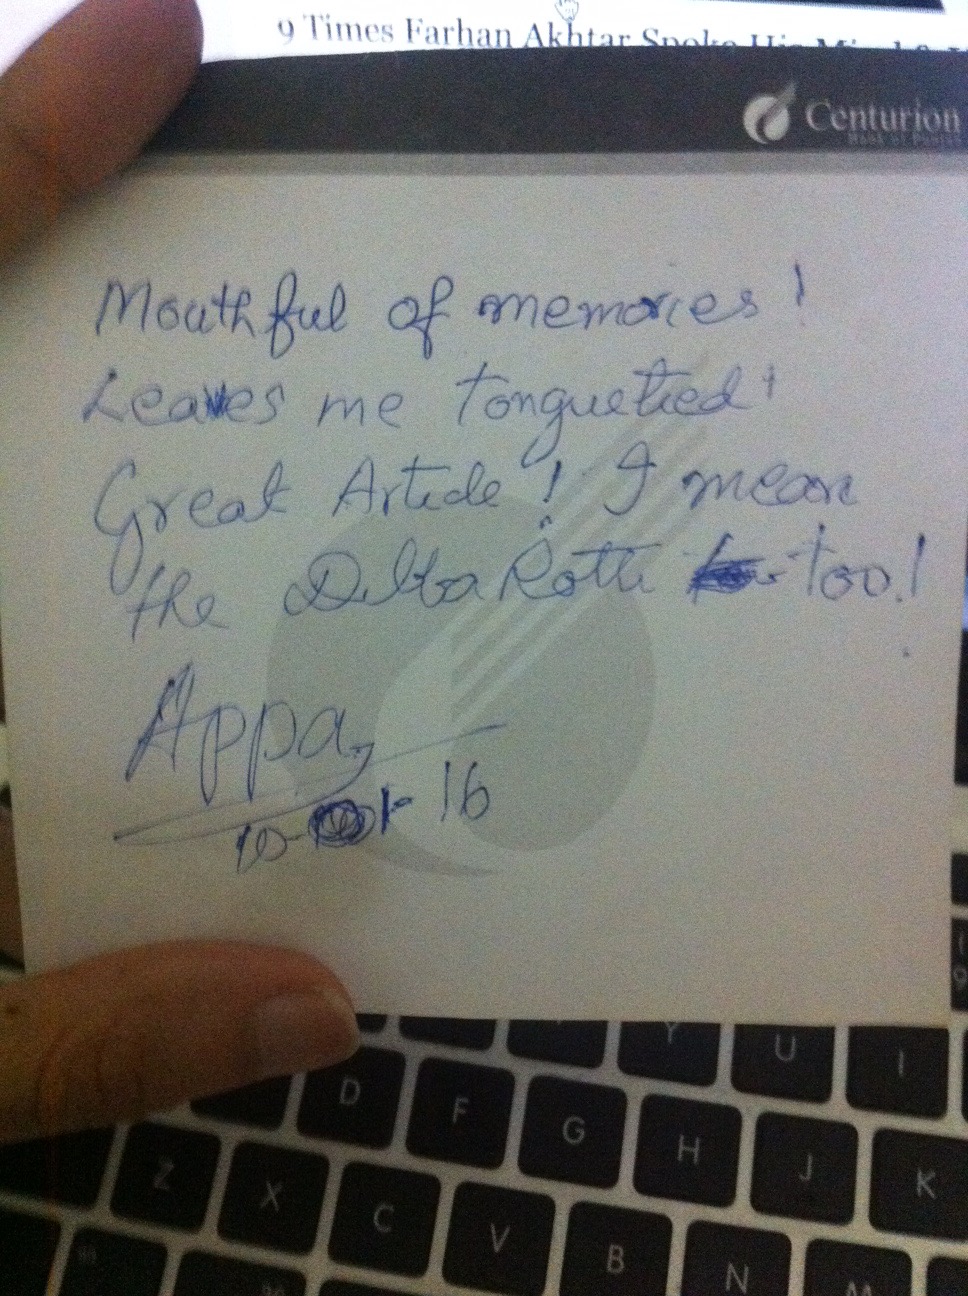 9 Times Farhan Akhtar Spoke His
Centurion
Bank of Punjab
Mouthful of memories!
Leaves me tonguetied!
Great Article! I mean
the Delta Rotti too!
Appa,
10-1-16
Y U I
9
D F G H J K
Z X C V B N M